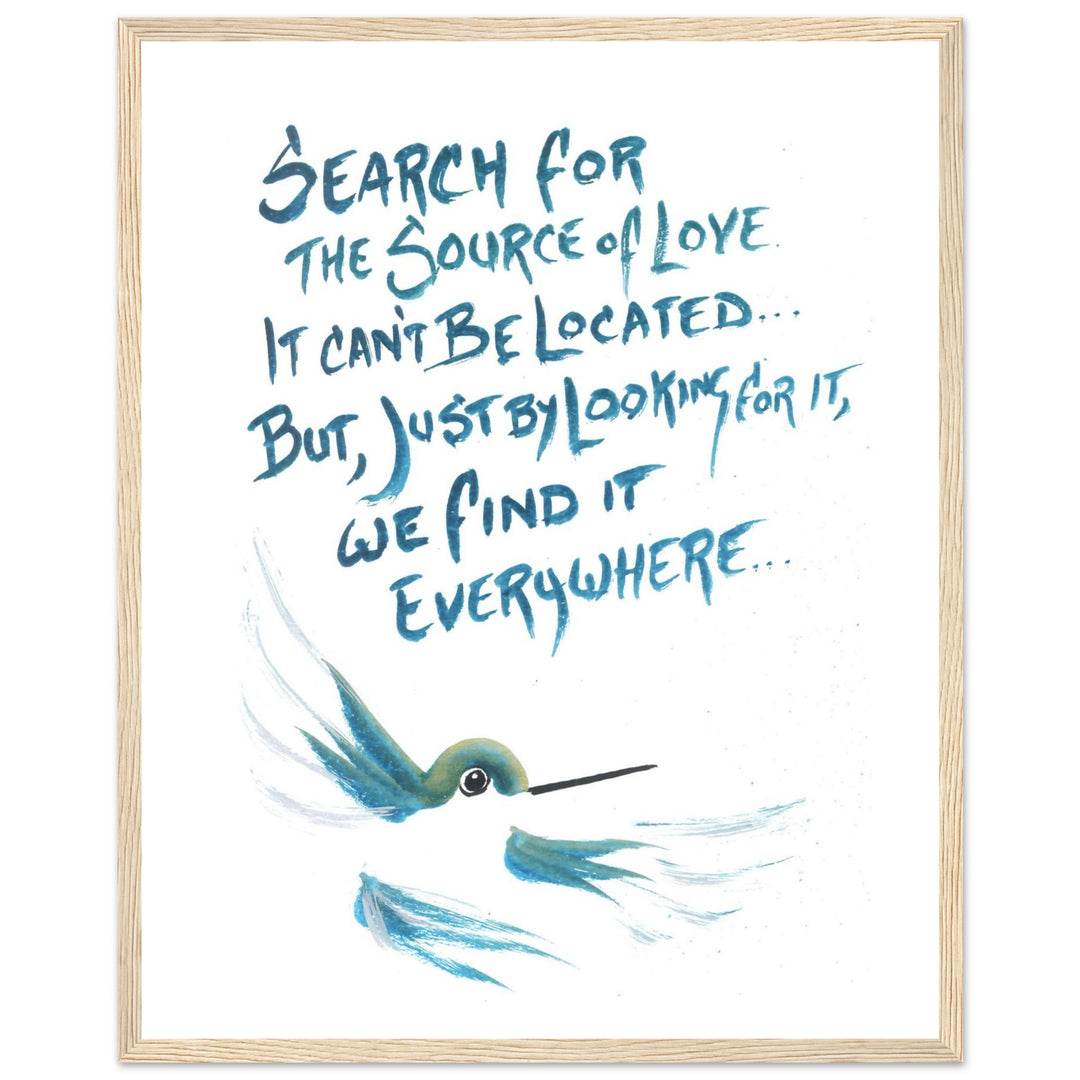 SEARCH FOR
THE SOURCE OF LOVE.
IT CAN'T BE LOCATED...
BUT, JUST BY LOOKING FOR IT,
WE FIND IT
EVERYWHERE...